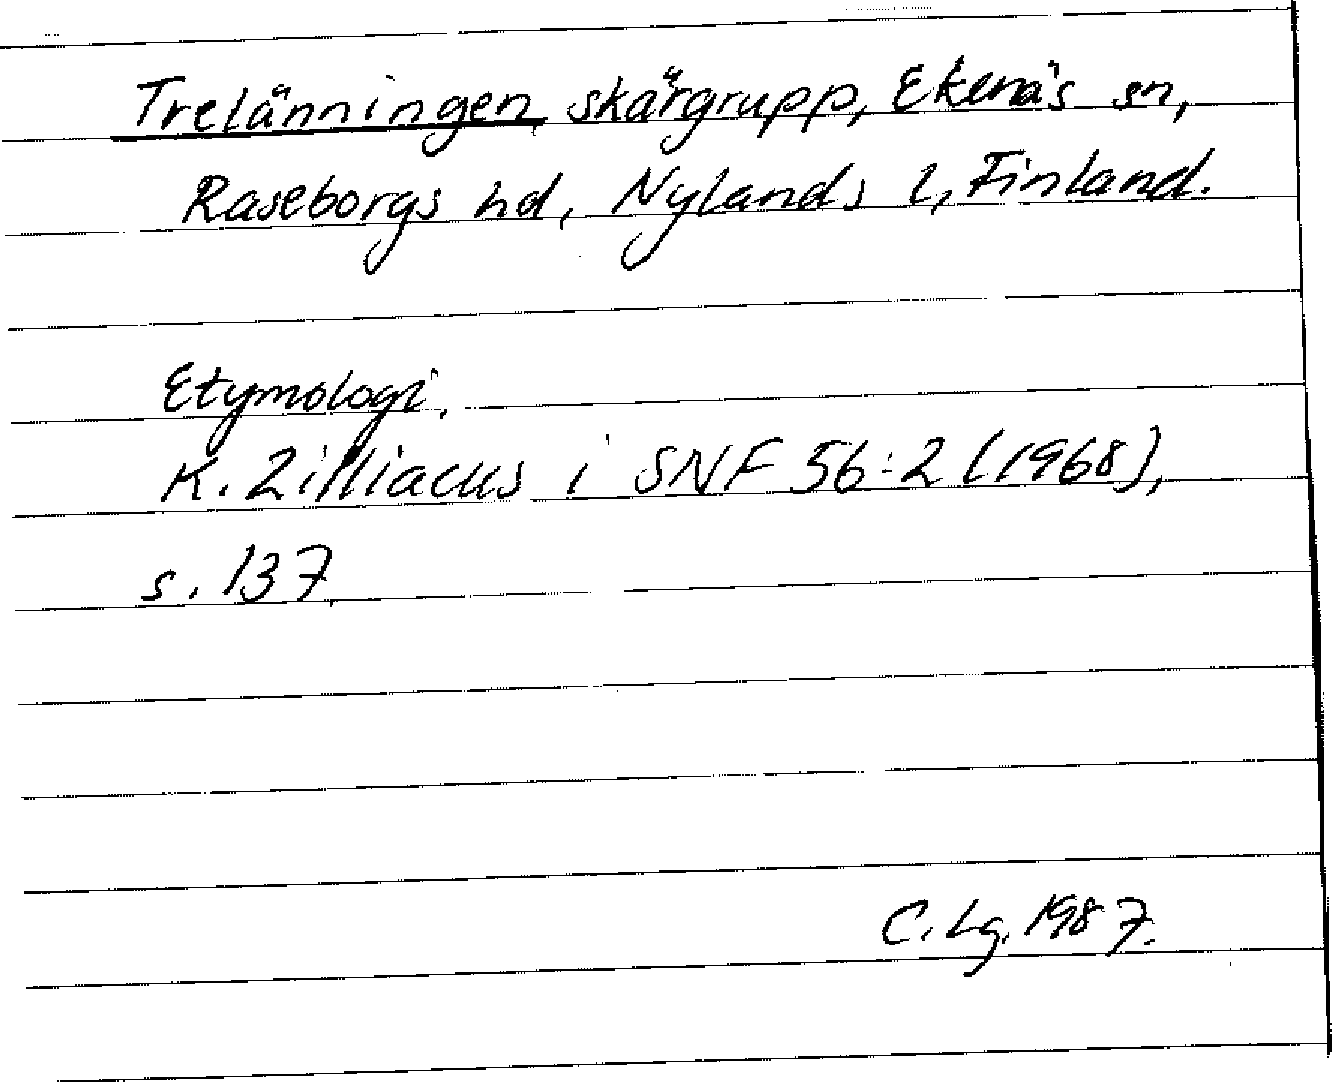 Trelänningen, skärgrupp, Ekenäs sn,
Raseborgs hd, Nylands l, Finland.
Etymologi.
K. Zilliacus i SNF 56:2 (1968),
s. 137.
C. Lg. 1987.